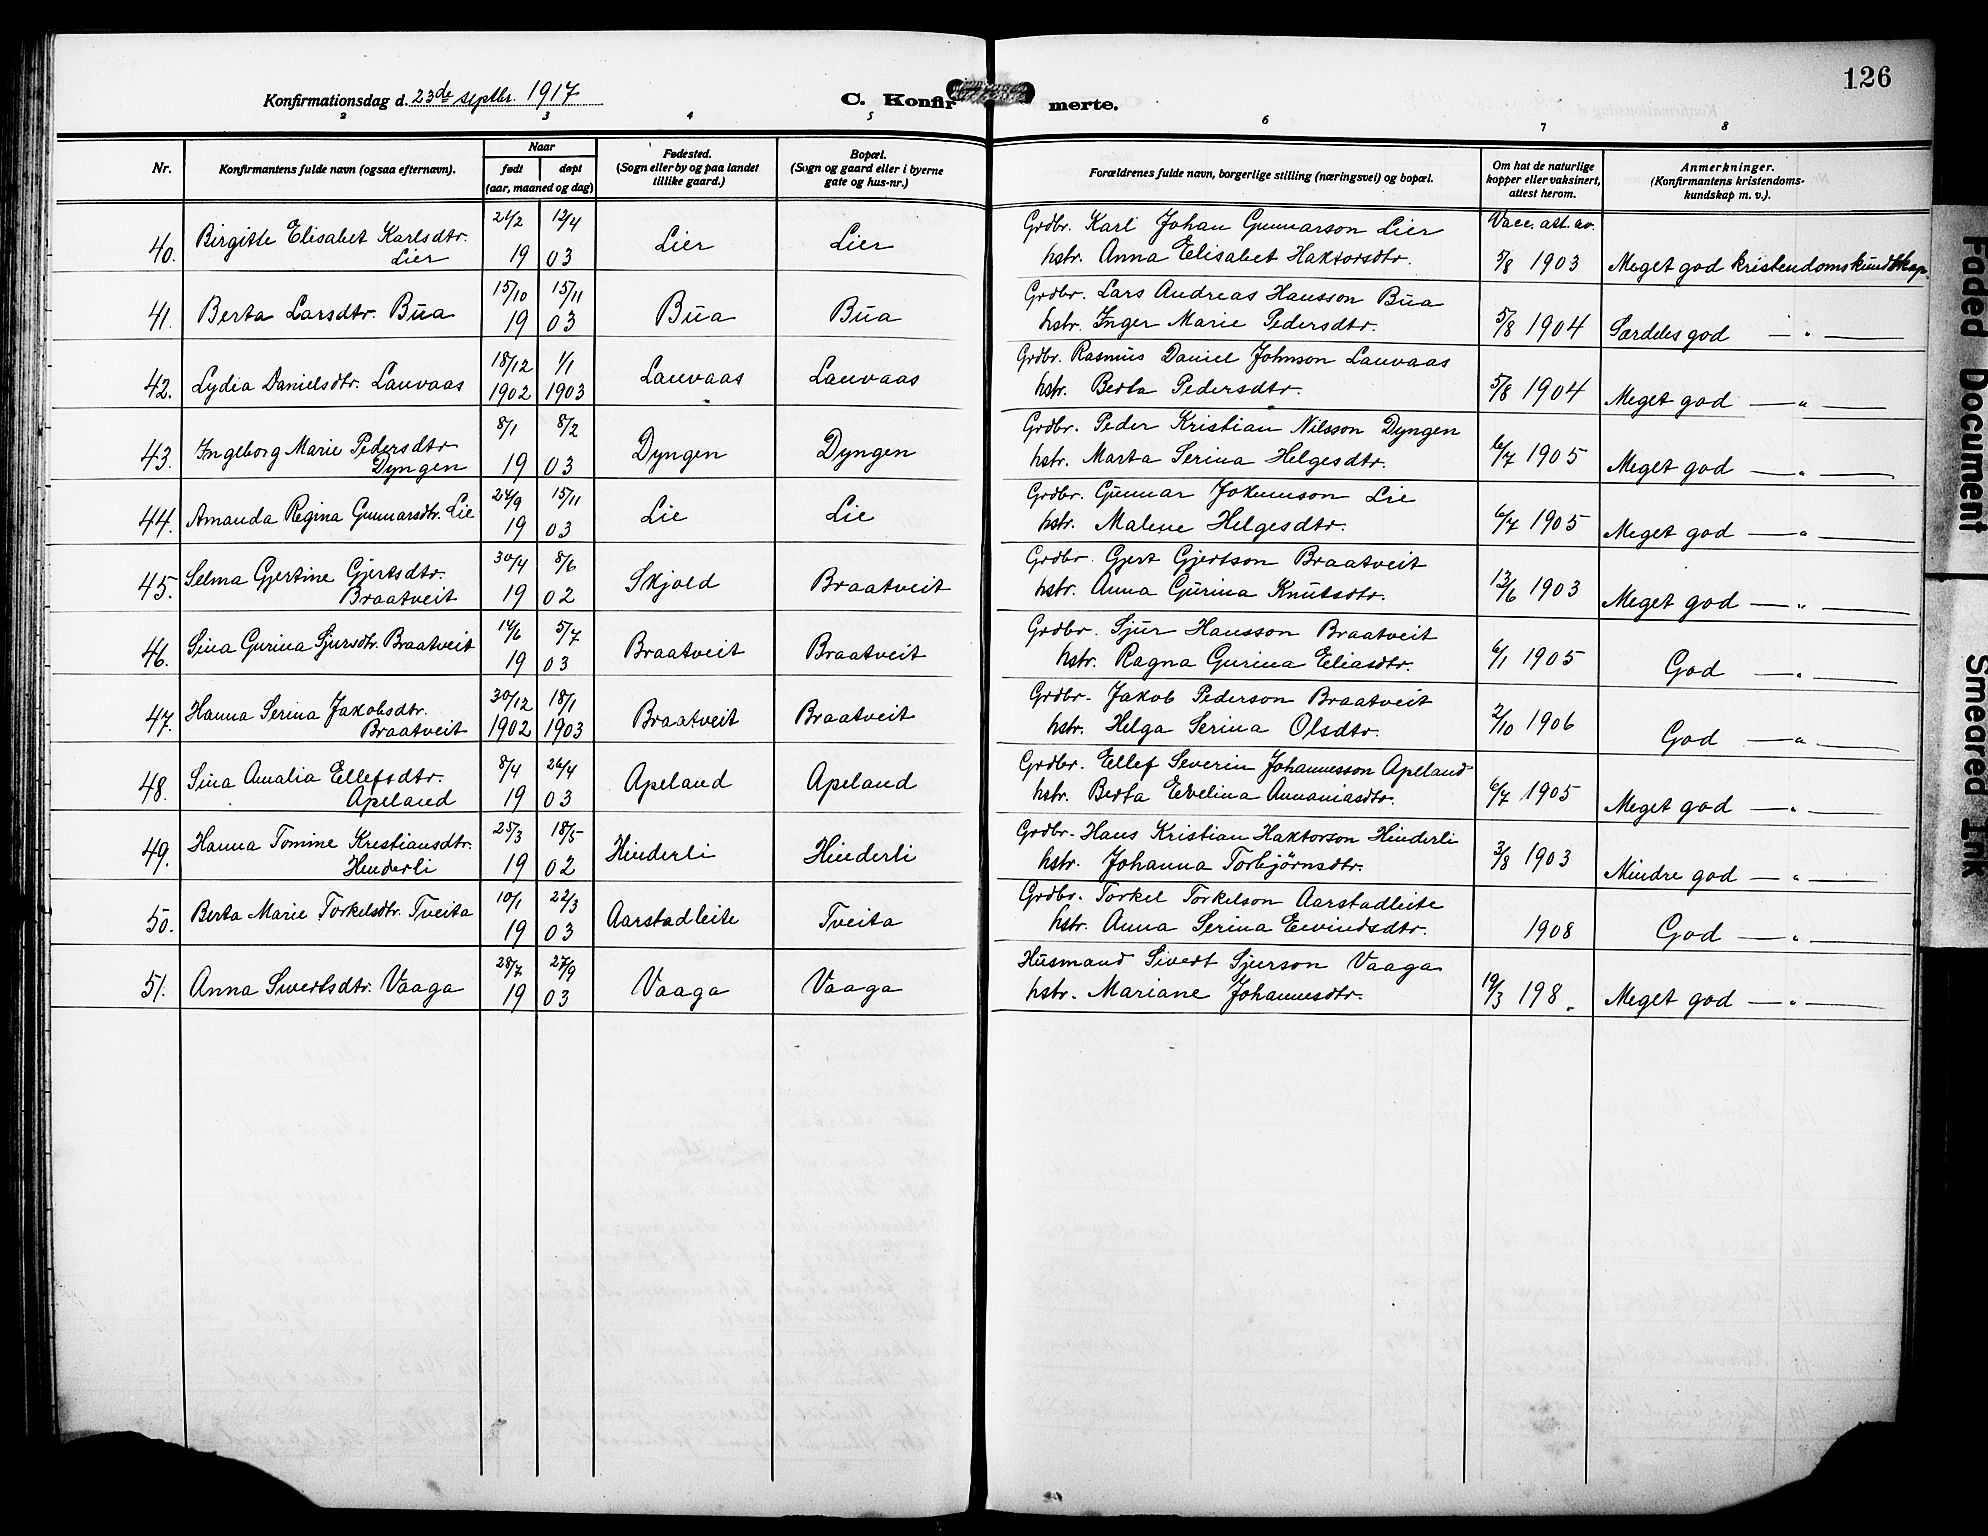 126
Konfirmationsdag d. 23de septbr. 1917
C. Konfirmerte.
2 3 4 5 6 7 8
Nr. Konfirmantens fulde navn (ogsaa efternavn). Naar født døpt (aar, maaned og dag) Fødested. (Sogn eller by og paa landet tillike gaard.) Bopæl. (Sogn og gaard eller i byerne gate og hus-nr.) Forældrenes fulde navn, borgerlige stilling (næringsvei) og bopæl. Om hat de naturlige kopper eller vaksinert, attest herom. Anmerkninger. (Konfirmantens kristendoms-kundskap m. v.).
21/2 12/4 Grdbr. Karl Johan Gunnarson Lier Vacc. att. av.
40. Birgitte Elisabet Karlsdtr. Lier 19 03 Lier Lier hstr. Anna Elisabet Haktorsdtr. 5/8 1903 Meget god kristendomskundskap.
15/10 15/11 Grdbr. Lars Andreas Hansson Bua
41. Berta Larsdtr. Bua 19 03 Bua Bua hstr. Inger Marie Pedersdtr. 5/8 1904 Særdeles god — " —
18/12 1/1 Grdbr. Rasmus Daniel Johnson Lauvaas
42. Lydia Danielsdtr. Lauvaas 1902 1903 Lauvaas Lauvaas hstr. Berta Pedersdtr. 5/8 1904 Meget god — " —
8/1 8/2 Grdbr. Peder Kristian Nilsson Dyngen
43. Ingeborg Marie Pedersdtr Dyngen 19 03 Dyngen Dyngen hstr. Marta Serina Helgesdtr. 6/7 1905 Meget god — " —
15/11 Grdbr. Gunnar Lie
44. Amanda Regina Gunnarsdtr. Lie 19 03 Lie Lie hstr. Malene Helgesdtr. 6/7 1905 Meget god — " —
30/4 8/6 Grdbr. Gjert Gjertson Braatveit
45. Selma Gjertine Gjertsdtr. Braatveit 19 02 Skjold Braatveit hstr. Anna Gurina Knutsdtr. 13/6 1903 Meget god — " —
14/6 5/7 Grdbr. Sjur Hansson Braatveit
46. Sina Gurina Sjursdtr. Braatveit 19 03 Braatveit Braatveit hstr. Ragna Gurina Eliasdtr. 6/1 1905 God — " —
30/12 18/1 Grdbr. Jakob Pederson Braatveit
47. Hanna Serina Jakobsdtr. Braatveit 1902 1903 Braatveit Braatveit hstr. Helga Serina Olsdtr. 2/10 1906 God — " —
8/4 26/4 Grdbr. Ellef Severin Johannesson Apeland
48. Sina Amalia Ellefsdtr. Apeland 19 03 Apeland Apeland hstr. Berta Evelina Annaniasdtr. 6/7 1905 Meget god — " —
25/3 18/5 Grdbr. Hans Kristian Haktorson Hinderli
49. Hanna Tomine Kristiansdtr. Hinderli 19 02 Hinderli Hinderli hstr. Johanna Torbjørnsdtr. 3/8 1903 Mindre god — " —
10/1 22/3 Grdbr. Torkel Torkelson Aarstadleite
50. Berta Marie Torkelsdtr. Tveita 19 03 Aarstadleite Tveita hstr. Anna Serina Eivindsdtr. 1908 God — " —
28/7 27/9 Husmand Sivert Sjurson Vaaga
51. Anna Sivertsdtr. Vaaga 19 03 Vaaga Vaaga hstr. Mariane Johannesdtr. 19/3 198. Meget god — " —
Faded Document
Smeared Ink